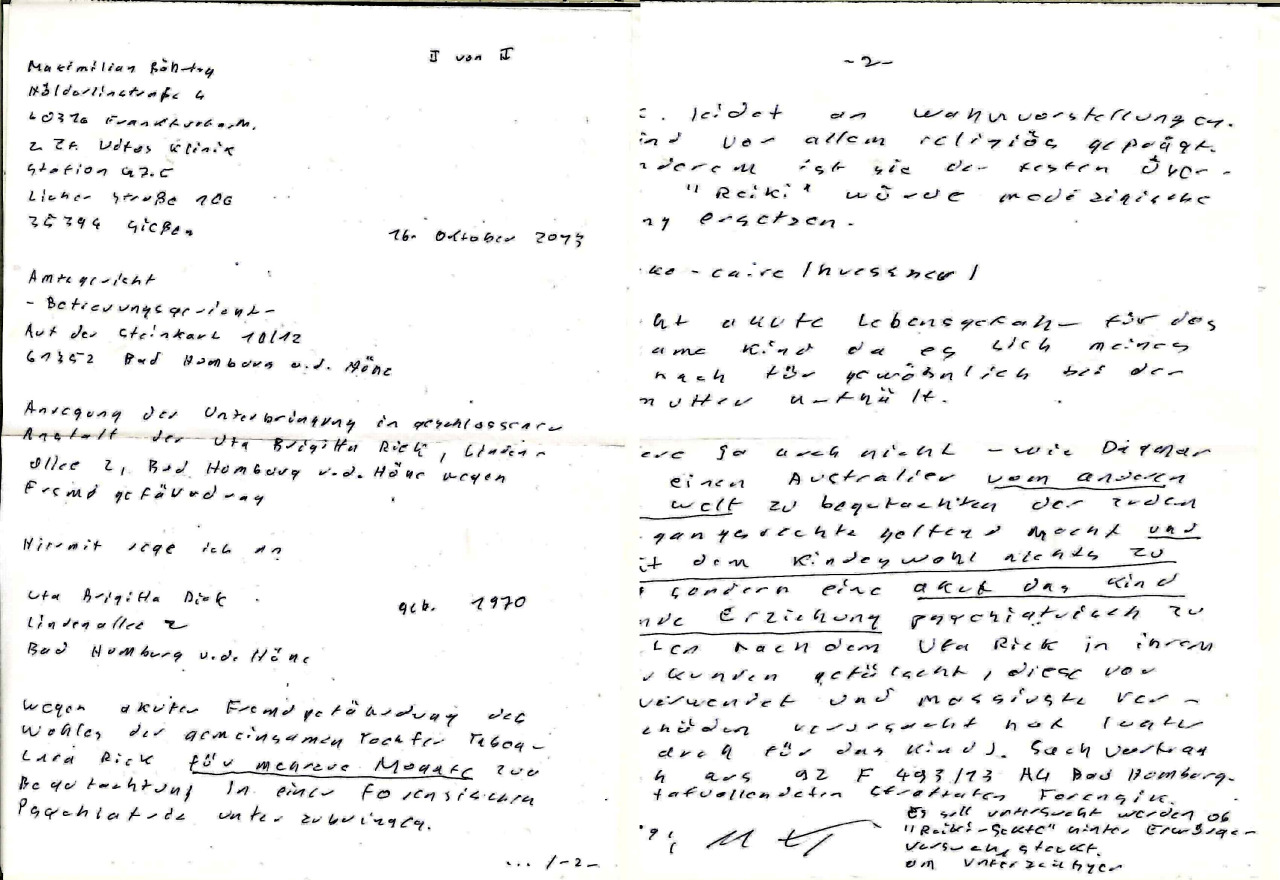 II von II
Maximilian
Hölderlinstraße 4
60316 Frankfurt a.M.
z Zt. Vitos Klinik
Station
Licher Straße 106
35394 Gießen
16. Oktober 2013
Amtsgericht
- Betreuungsgericht -
Auf der Steinkaut 10/12
61352 Bad Homburg v.d. Höhe
Anregung der Unterbringung in geschlossener
Anstalt der Uta Brigitta Rick, Linden-
allee 2, Bad Homburg v.d. Höhe wegen
Fremdgefährdung
Hiermit rege ich an
Uta Brigitta Rick geb. 1970
Lindenallee 2
Bad Homburg v.d. Höhe
wegen akuter Fremdgefährdung des
Wohles der gemeinsamen Tochter Tabea-
Lara Rick für mehrere Monate zur
Begutachtung in einer Forensischen
Psychiatrie unterzubringen.
... /-2-
-2-
leidet an Wahnvorstellungen.
ind vor allem religiös geprägt.
nderem ist sie der festen Über-
"Reiki" würde medizinische
ng ersetzen.
ht akute Lebensgefahr für das
ame Kind da es sich meines
nach für gewöhnlich bei der
mutter aufhält.
ere so auch nicht - wie Dagmar
einen Australier vom anderen
welt zu begutachten der zudem
gangsrechte geltend macht und
it dem Kindeswohl nichts zu
sondern eine akut das Kind
nde Erziehung psychiatrisch zu
nachdem Uta Rick in ihrem
kunden gefälscht, diese vor
verwendet und massivste Ver-
chäden verursacht hat (auch
durch für das Kind). Sachvortrag
h aus 92 F 493/13 AG Bad Homburg-
tatvollendeten Straftaten Forensik.
Es soll untersucht werden ob
"Reiki-Sekte" hinter Erwürge-
versuch steckt.
am Unterzeichner